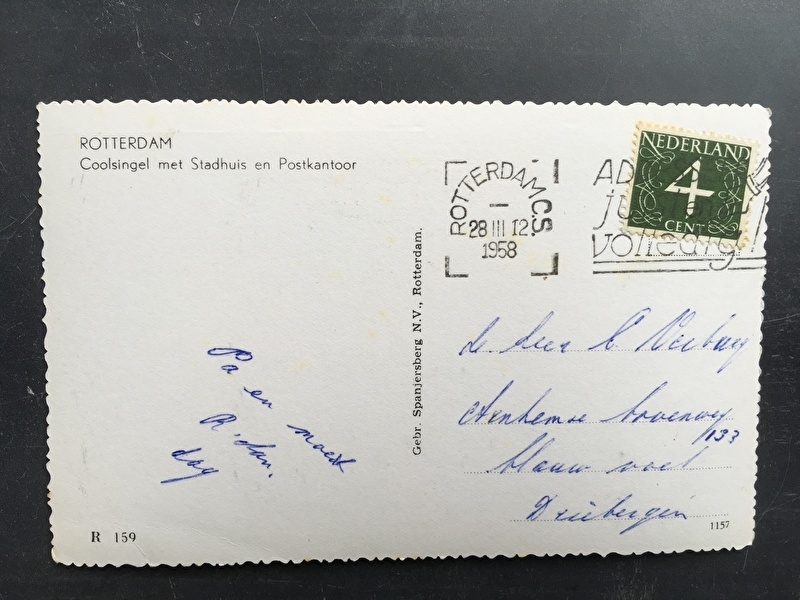 ROTTERDAM
Coolsingel met Stadhuis en Postkantoor
ROTTERDAM C.S.
28 III 12
1958
volledig!
NEDERLAND
4
CENT
Gebr. Spanjersberg N.V., Rotterdam.
Pa en moeder
R'dam.
dag
de heer
Arnhemse bovenweg
133
blauw voet
Driebergen
R 159
1157